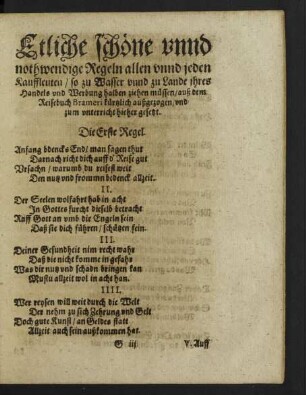 Etliche schöne vnnd
nothwendige Regeln allen vnnd jeden
Kauffleuten / so zu Wasser vnnd zu Lande ihres
Handels vnd Werbung halben ziehen müssen / auß dem
Reisebuch Brameri kürtzlich außgezogen / vnd
zum vnterricht hieher gesetzt.
Die Erste Regel.
Anfang bdencks End / man sagen thut
Darnach richt dich auff d' Reise gut
Vrsachn / warumb du reisest weit
Den nutz vnd frommn bedenck allzeit.
II.
Der Seelen wolfahrt hab in acht
In Gottes furcht dieselb betracht
Ruff Gott an vmb die Engeln sein
Daß sie dich führen / schützen fein.
III.
Deiner Gesundheit nim recht wahr
Daß die nicht komme in gefahr
Was dir nutz vnd schadn bringen kan
Mustu allzeit wol in acht han.
IIII.
Wer reysen will weit durch die Welt
Der nehm zu sich Zehrung vnd Gelt
Doch gute Kunst / an Geldes statt
Allzeit auch sein außkommen hat.
G iij V. Auff